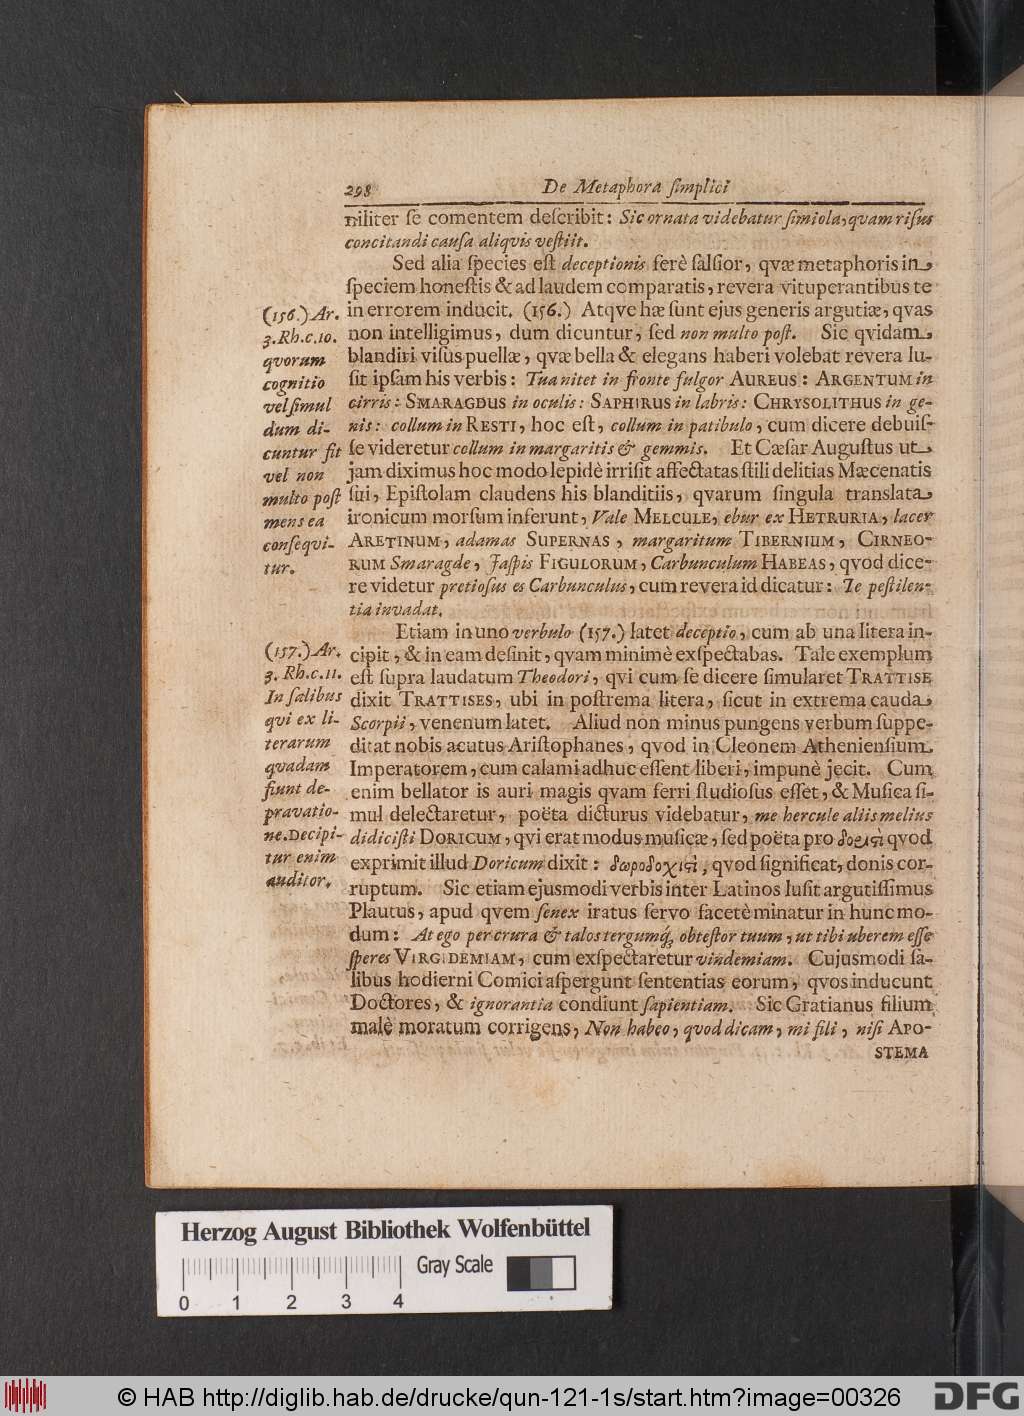 298 De Metaphora ſimplici
niliter ſe comentem deſcribit: Sic ornata videbatur ſimiola, quam riſus
concitandi cauſa aliqvis veſtiit.
Sed alia ſpecies eſt deceptionis ferè ſalſior, qvæ metaphoris in
ſpeciem honeſtis & ad laudem comparatis, revera vituperantibus te
in errorem inducit. (156.) Atqve hæ ſunt ejus generis argutiæ, qvas
non intelligimus, dum dicuntur, ſed non multo poſt. Sic qvidam
blandiri viſus puellæ, qvæ bella & elegans haberi volebat revera lu-
ſit ipſam his verbis: Tua nitet in fronte fulgor AUREUS: ARGENTUM in
cirris: SMARAGDUS in oculis: SAPHIRUS in labris: CHRYSOLITHUS in ge-
nis: collum in RESTI, hoc eſt, collum in patibulo, cum dicere debuiſ-
ſe videretur collum in margaritis & gemmis. Et Cæſar Auguſtus ut
jam diximus hoc modo lepidè irriſit affectatas ſtili delitias Mæcenatis
ſui, Epiſtolam claudens his blanditiis, qvarum ſingula translata
ironicum morſum inferunt, Vale MELCULE, ebur ex HETRURIA, lacer
ARETINUM, adamas SUPERNAS, margaritum TIBERNIUM, CIRNEO-
RUM Smaragde, Jaſpis FIGULORUM, Carbunculum HABEAS, qvod dice-
re videtur pretioſus es Carbunculus, cum revera id dicatur: Te peſtilen-
tia invadat.
Etiam in uno verbulo (157.) latet deceptio, cum ab una litera in-
cipit, & in eam deſinit, qvam minimè exſpectabas. Tale exemplum
eſt ſupra laudatum Theodori, qvi cum ſe dicere ſimularet TRATTISE
dixit TRATTISES, ubi in poſtrema litera, ſicut in extrema cauda
Scorpii, venenum latet. Aliud non minus pungens verbum ſuppe-
ditat nobis acutus Ariſtophanes, qvod in Cleonem Athenienſium
Imperatorem, cum calami adhuc eſſent liberi, impunè jecit. Cum
enim bellator is auri magis qvam ferri ſtudioſus eſſet, & Muſica ſi-
mul delectaretur, poëta dicturus videbatur, me hercule aliis melius
didiciſti DORICUM, qvi erat modus muſicæ, ſed poëta pro δοριςὶ qvod
exprimit illud Doricum dixit: δωροδοχιςὶ, qvod ſignificat, donis cor-
ruptum. Sic etiam ejusmodi verbis inter Latinos luſit argutiſſimus
Plautus, apud qvem ſenex iratus ſervo facetè minatur in hunc mo-
dum: At ego per crura & talos tergumq́, obteſtor tuum, ut tibi uberem eſſe
ſperes VIRGIDEMIAM, cum exſpectaretur vindemiam. Cujusmodi ſa-
libus hodierni Comici aſpergunt ſententias eorum, qvos inducunt
Doctores, & ignorantia condiunt ſapientiam. Sic Gratianus filium
malè moratum corrigens, Non habeo, quod dicam, mi fili, niſi APO-
STEMA
(156.) Ar.
3. Rh. c. 10.
quorum
cognitio
vel ſimul
dum di-
cuntur fit
vel non
multo poſt
mens ea
conſequi-
tur.
(157.) Ar.
3. Rh. c. 11.
In ſalibus
qui ex li-
terarum
quadam
fiunt de-
pravatio-
ne. Decipi-
tur enim
auditor.
Herzog August Bibliothek Wolfenbüttel
Gray Scale
0 1 2 3 4
© HAB http://diglib.hab.de/drucke/qun-121-1s/start.htm?image=00326
DFG